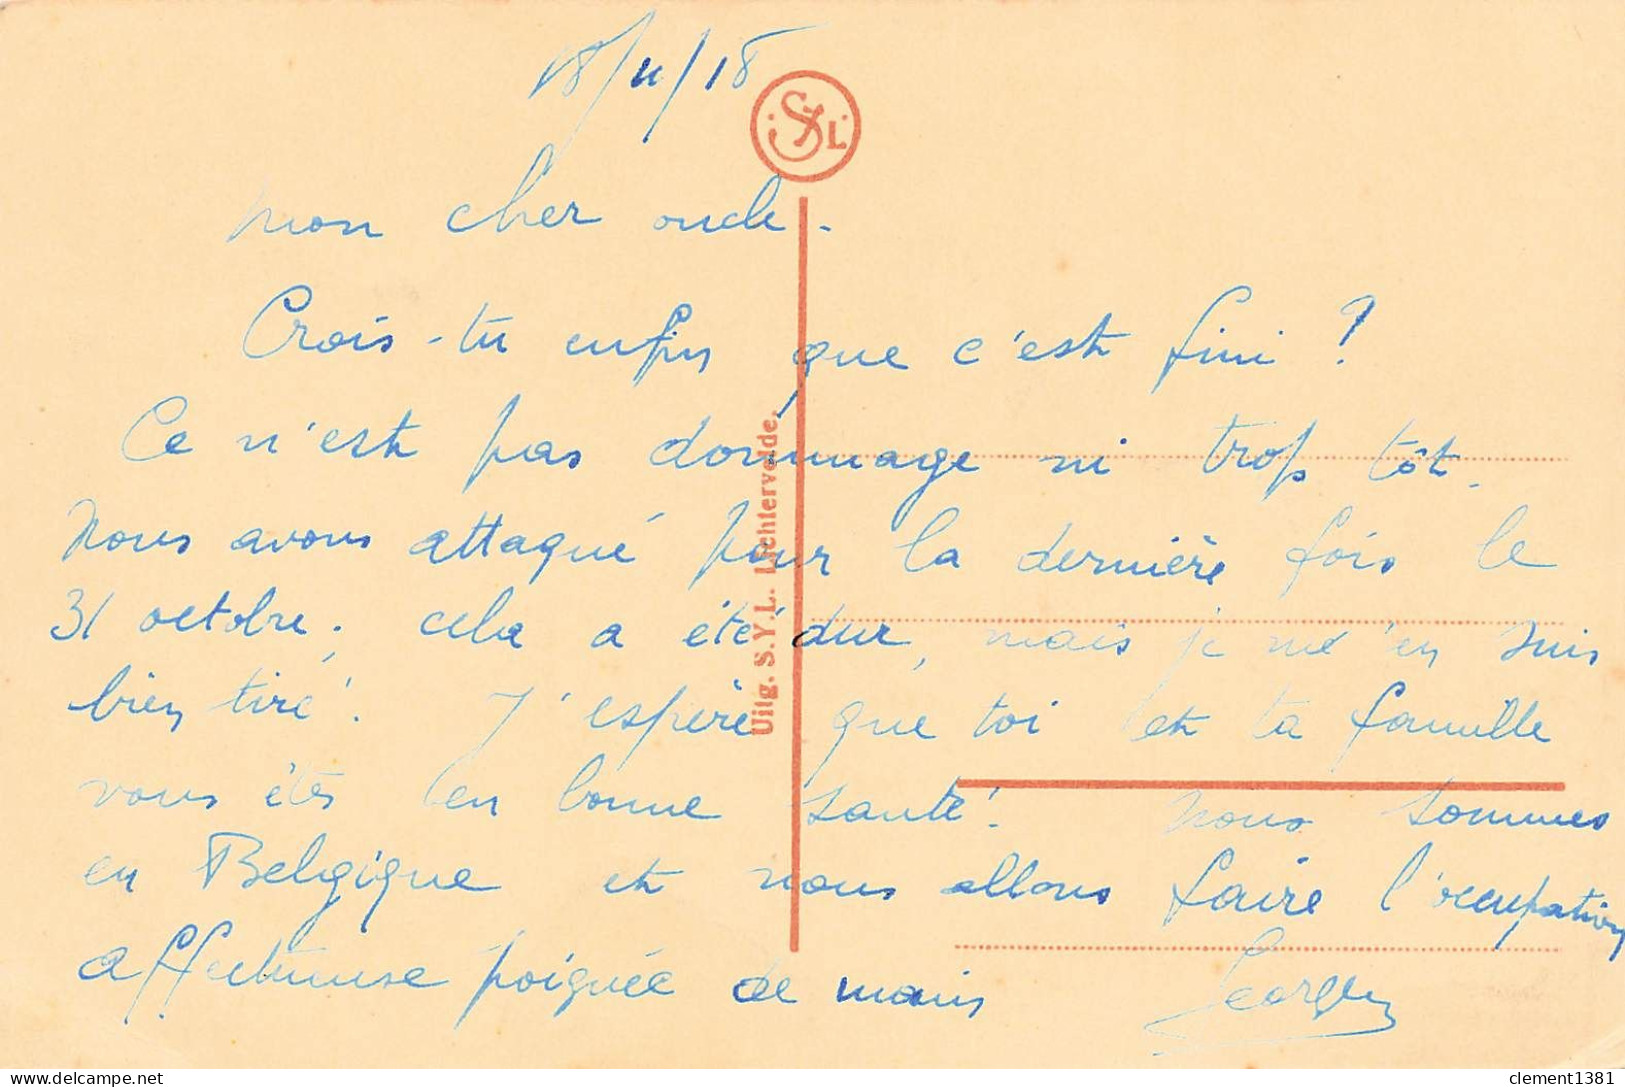 18/11/18
S.Y.L.
Mon cher oncle.
Crois-tu enfin que c'est fini ?
Ce n'est pas dommage ni trop tôt.
Nous avons attaqué pour la dernière fois le
31 octobre. cela a été dur, mais je m'en suis
bien tiré. J'espère que toi et ta famille
vous êtes en bonne santé. Nous sommes
en Belgique et nous allons faire l'occupation
affectueuse poignée de mains Georges
Uitg. S.Y.L. Lichtervelde.
clement1381